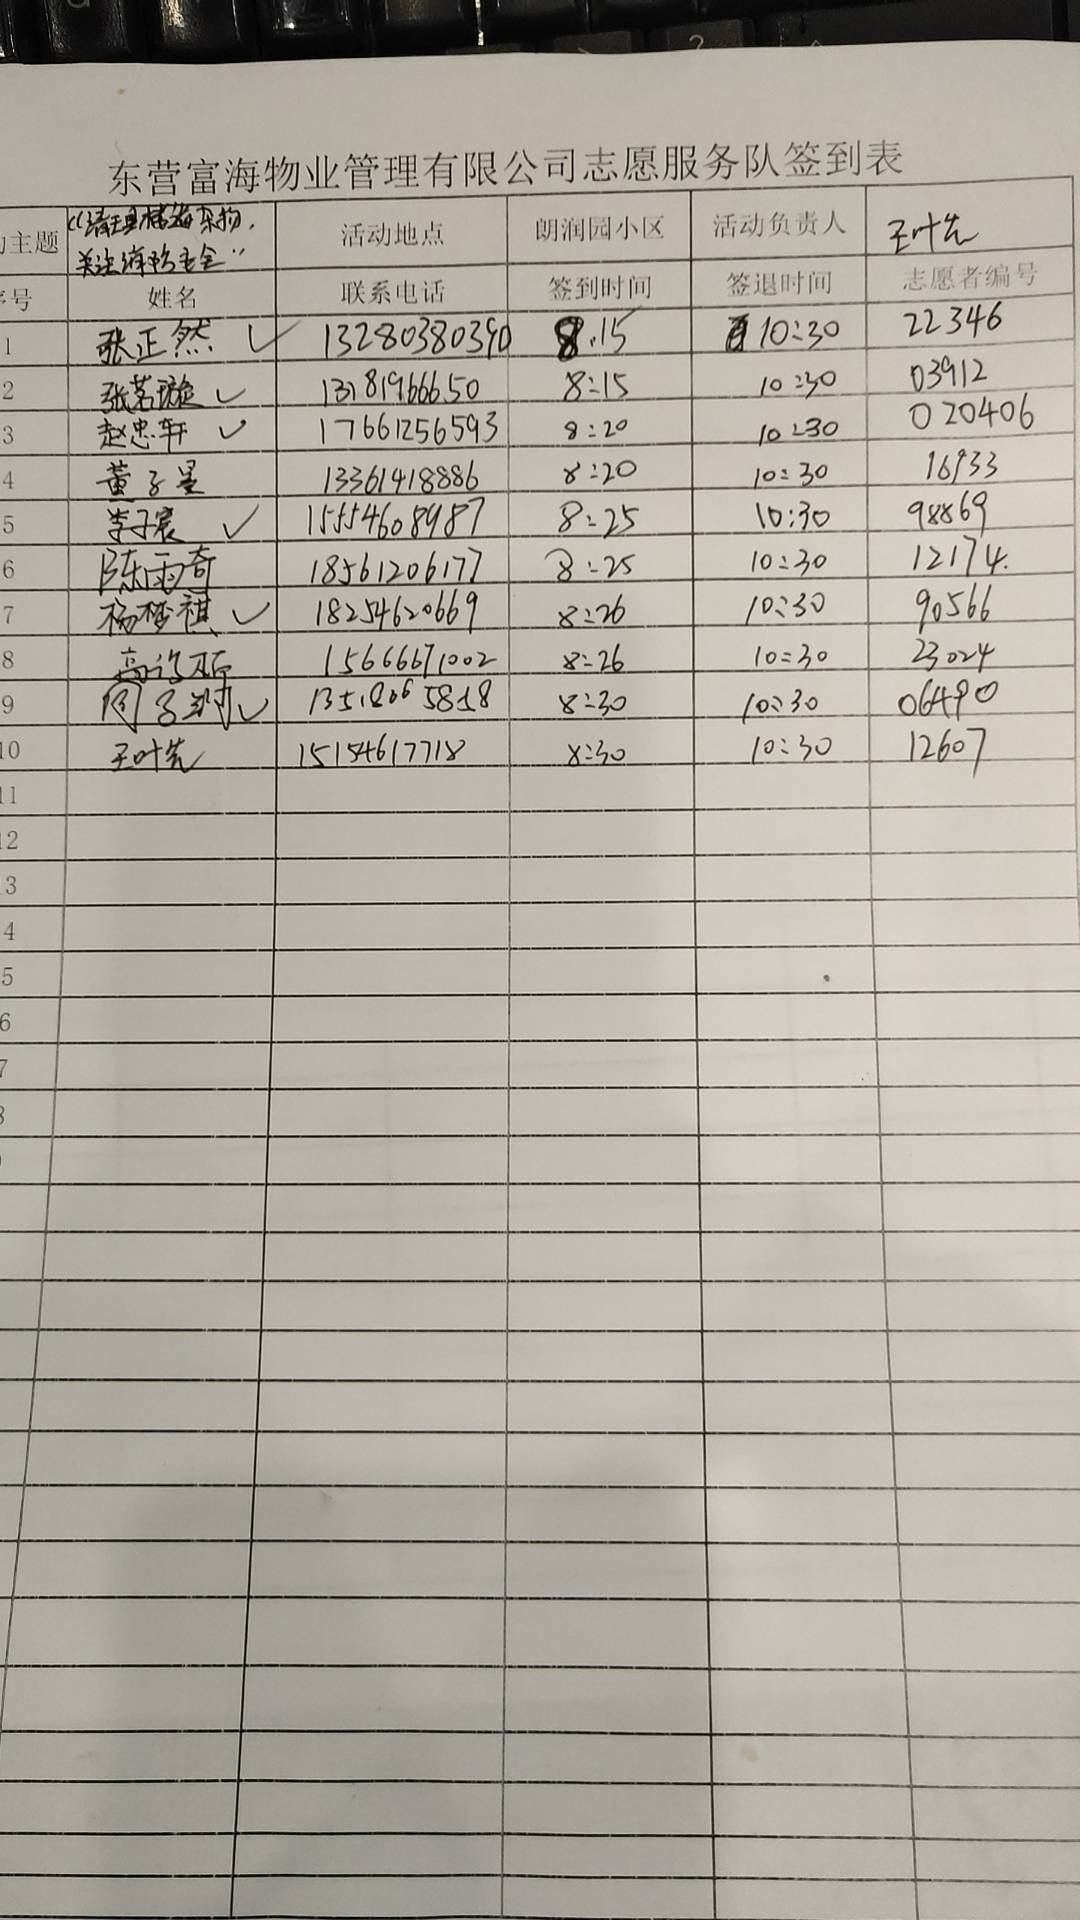 东营富海物业管理有限公司志愿服务队签到表
主题 “清理楼道杂物, 活动地点 朗润园小区 活动负责人 王叶先
关注消防安全”
号 姓名 联系电话 签到时间 签退时间 志愿者编号
1 张正然 ✓ 13280380390 8:15 10:30 22346
2 张茗璇 ✓ 13181966650 8:15 10:30 03912
3 赵忠轩 ✓ 17661256593 8:20 10:30 020406
4 董子星 13361418886 8:20 10:30 16933
5 李子宸 ✓ 15554608987 8:25 10:30 98869
6 陈雨奇 18561206177 8:25 10:30 12174.
7 杨梦祺 ✓ 18254620669 8:26 10:30 90566
8 高 15666671002 8:26 10:30 23024
9 周子 ✓ 8:30 10:30 06490
10 王叶先 15154617718 8:30 10:30 12607
11
12
13
4
5
6
7
8